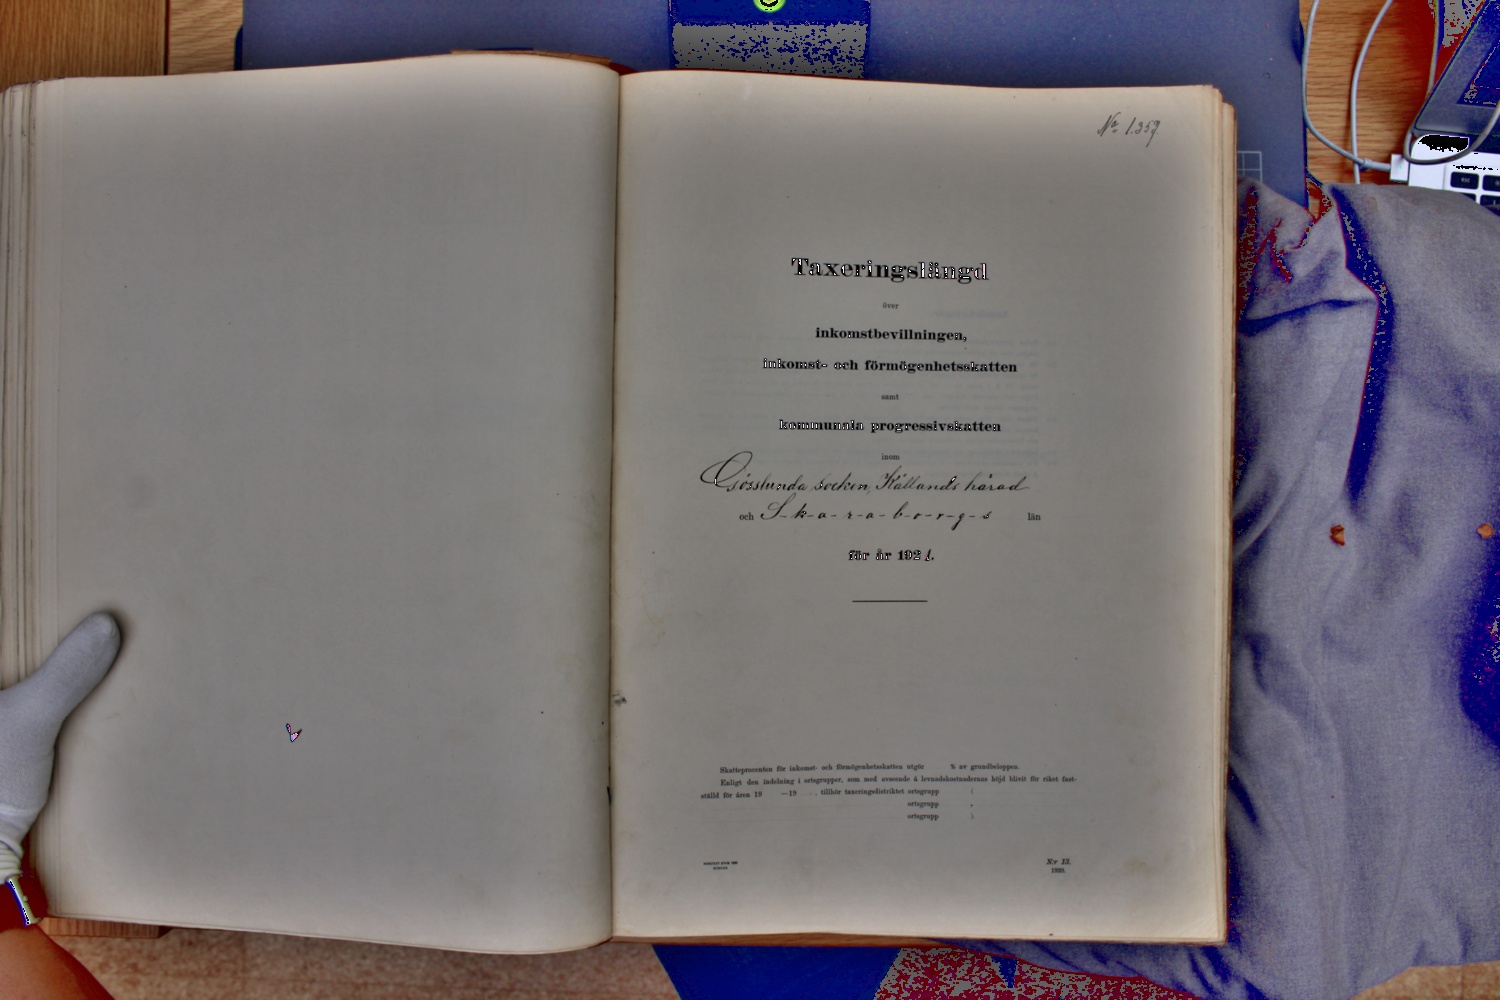 No 1.359.
Taxeringslängd
över
inkomstbevillningen,
inkomst- och förmögenhetsskatten
samt
kommunala progressivskatten
inom
Gösslunda socken, Kållands härad
och S-k-a-r-a-b-o-r-g-s län
för år 1921.
Skatteprocenten för inkomst- och förmögenhetsskatten utgör % av grundbeloppen.
Enligt den indelning i ortsgrupper, som med avseende å levnadskostnadernas höjd blivit för riket fast-
ställd för åren 19 —19 , tillhör taxeringsdistriktet ortsgrupp
ortsgrupp
ortsgrupp
N:r 13.
1920.